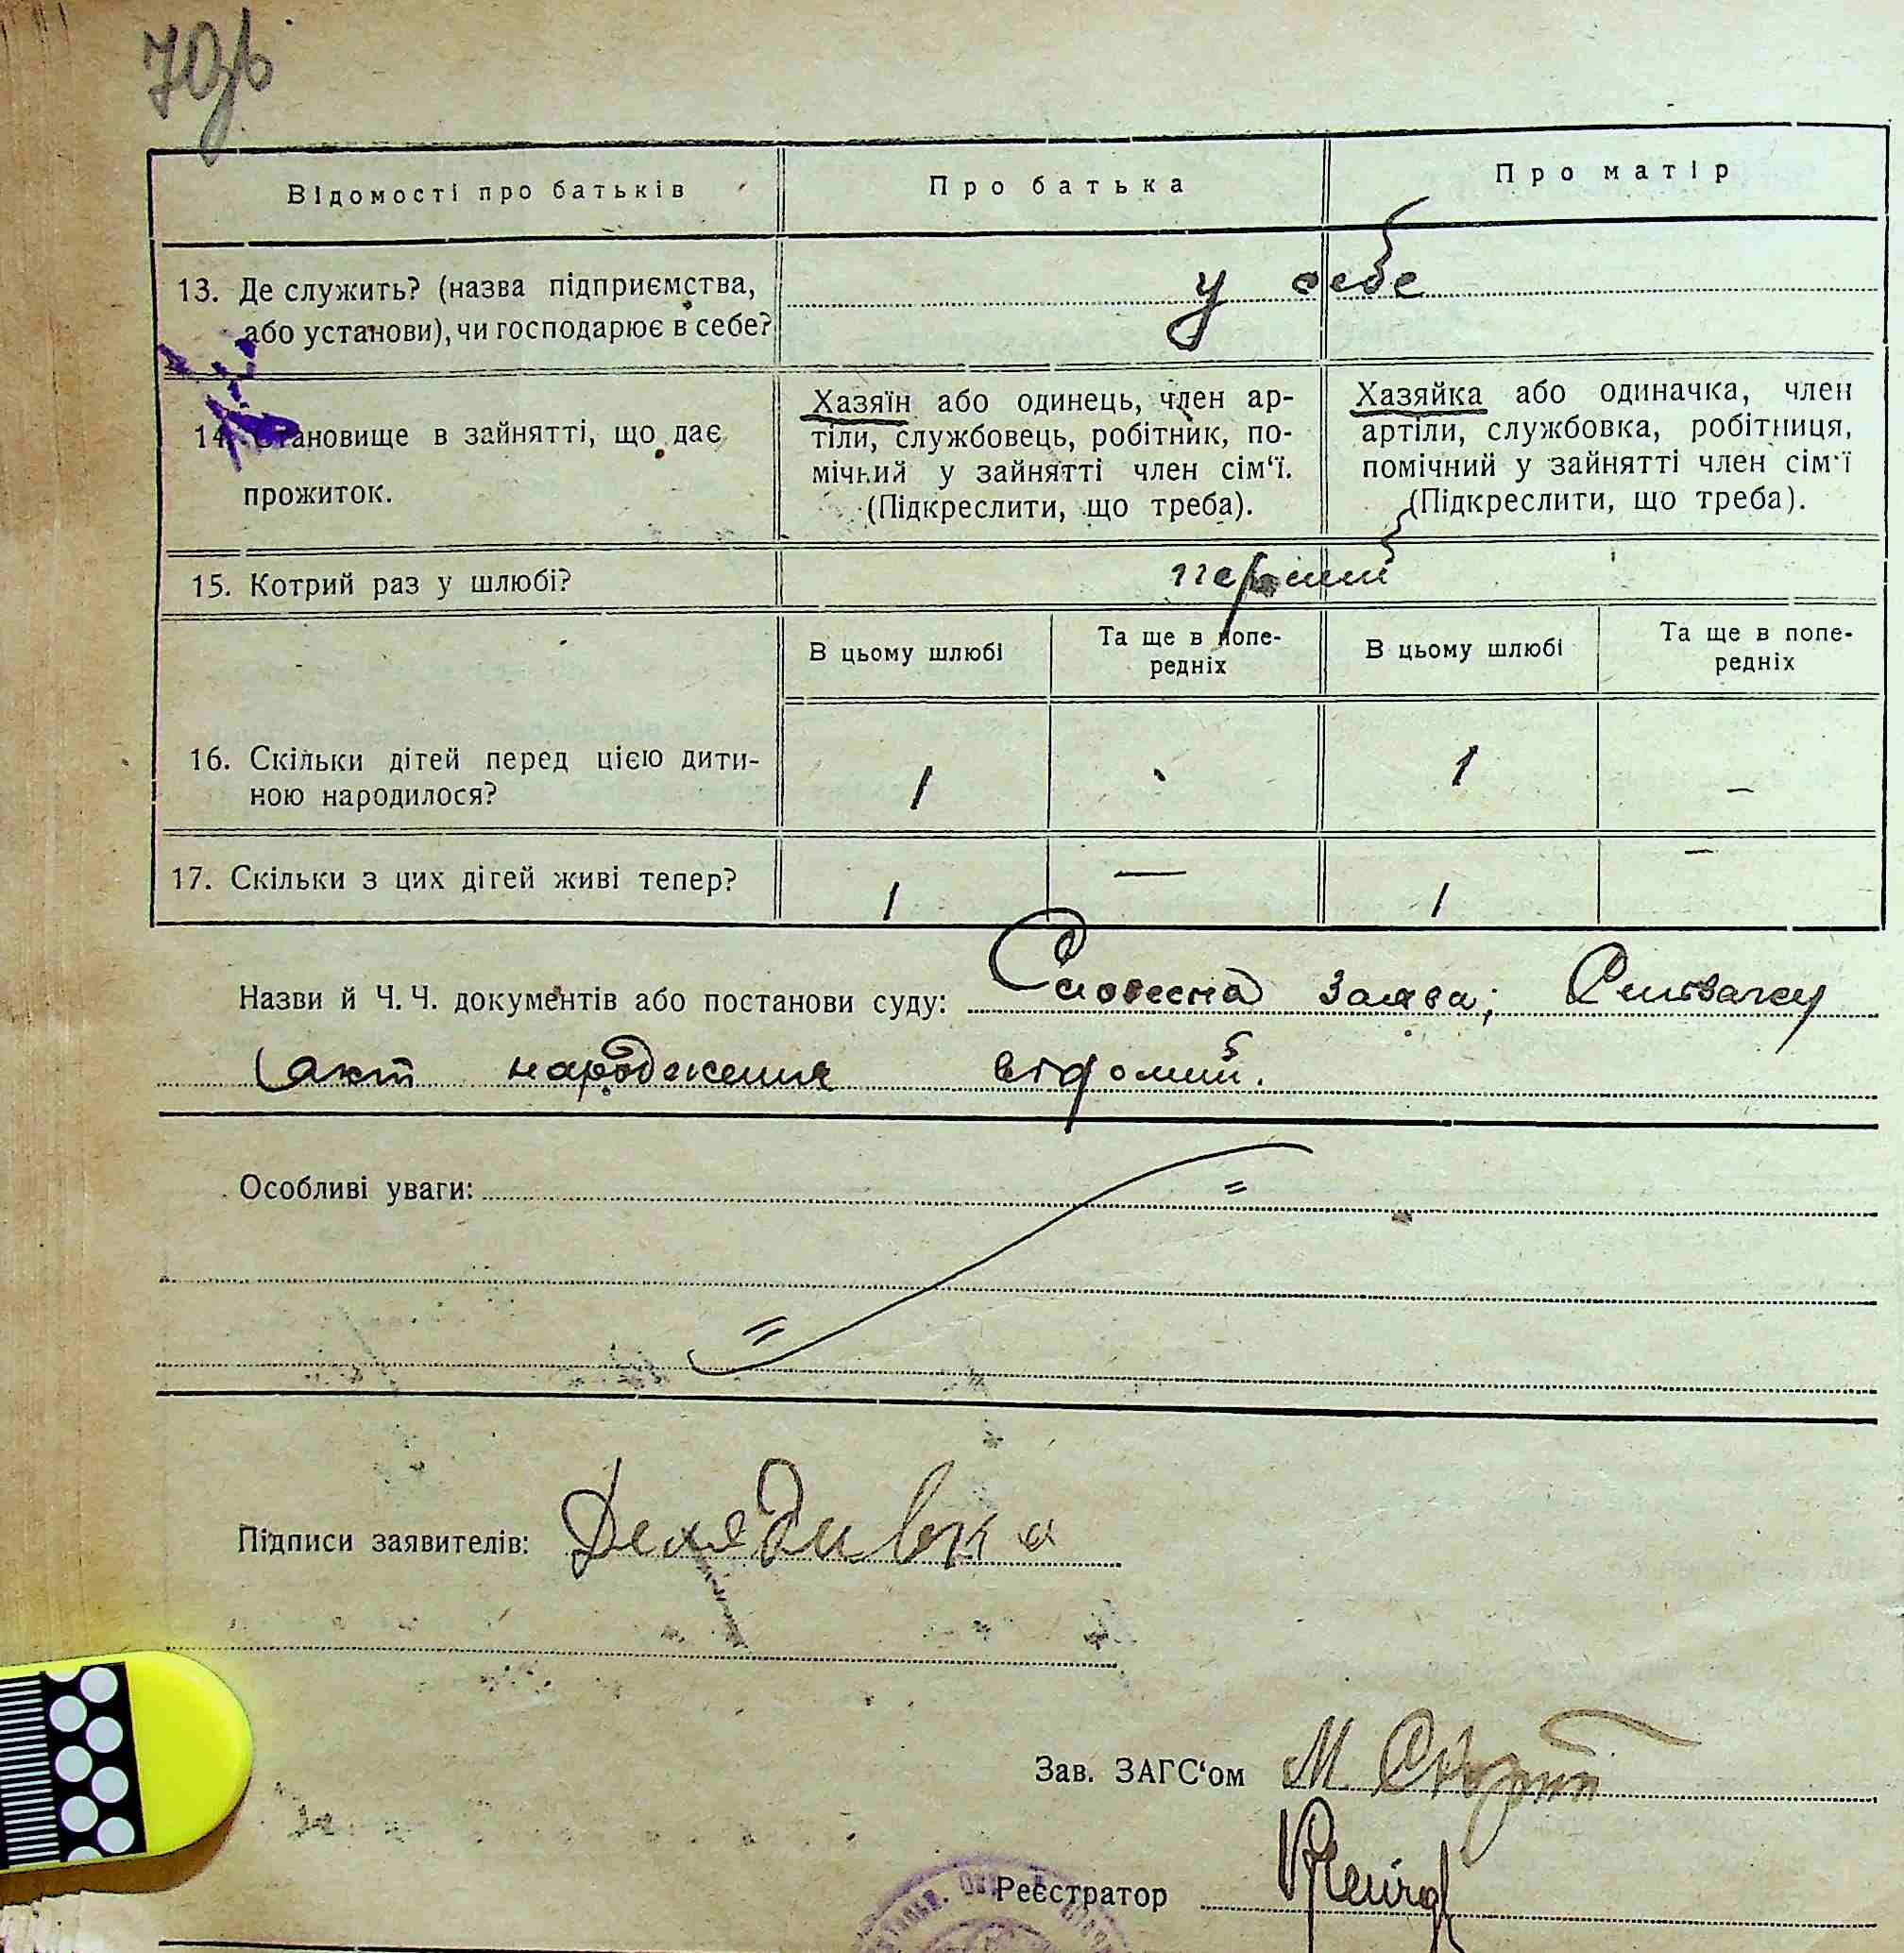 70зв
Відомості про батьків Про батька Про матір
13. Де служить? (назва підприємства,
або установи), чи господарює в себе?
у себе
14. Становище в зайнятті, що дає
прожиток.
Хазяїн або одинець, член ар-
тіли, службовець, робітник, по-
мічний у зайнятті член сім‘ї.
(Підкреслити, що треба).
Хазяйка або одиначка, член
артіли, службовка, робітниця,
помічний у зайнятті член сім‘ї
(Підкреслити, що треба).
15. Котрий раз у шлюбі? перший
В цьому шлюбі
Та ще в попе-
редніх
В цьому шлюбі
Та ще в попе-
редніх
16. Скільки дітей перед цією дити-
ною народилося?
1 - 1 —
17. Скільки з цих дітей живі тепер? 1 — 1 —
Назви й Ч. Ч. документів або постанови суду: Словесна заява;
акт народження відомий.
Особливі уваги:
Підписи заявителів:
Зав. ЗАГС‘ом М.
Реєстратор